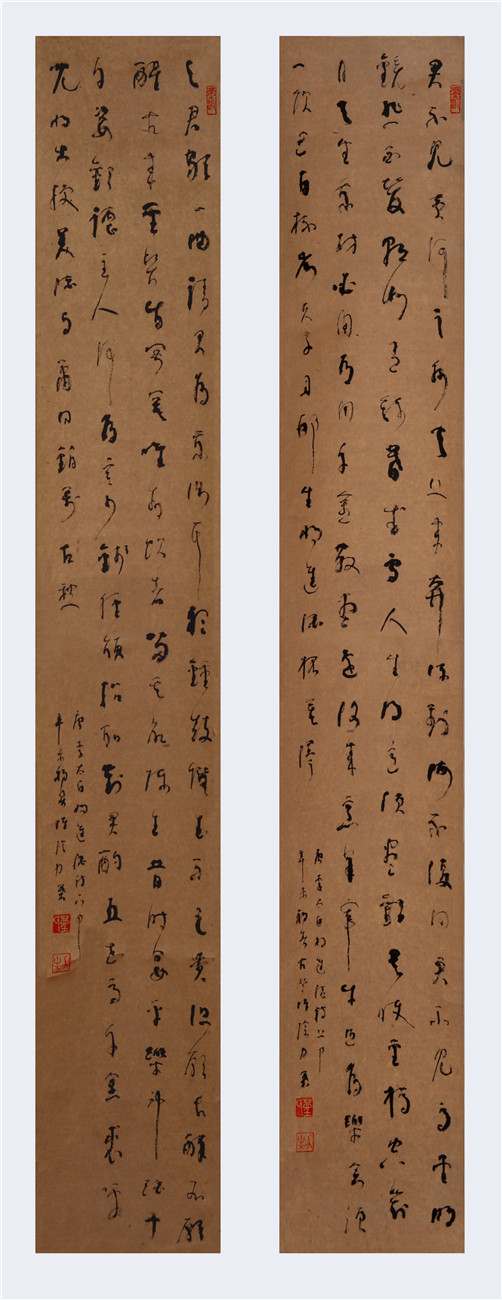 君不見黃河之水天上來奔流到海不復回君不見高堂明
鏡悲白髮朝如青絲暮成雪人生得意須盡歡莫使金樽空對
月天生我材必有用千金散盡還復來烹羊宰牛且為樂會須
一飲三百杯岑夫子丹邱生將進酒杯莫停
唐李太白將進酒詩上
辛未初春
與君歌一曲請君為我側耳聽鐘鼓饌玉不足貴但願長醉不願
醒古來聖賢皆寂寞唯有飲者留其名陳王昔時宴平樂斗酒十
千恣歡謔主人何為言少錢徑須沽取對君酌五花馬千金裘呼
兒將出換美酒與爾同銷萬古愁
唐李太白將進酒詩下
辛未初春